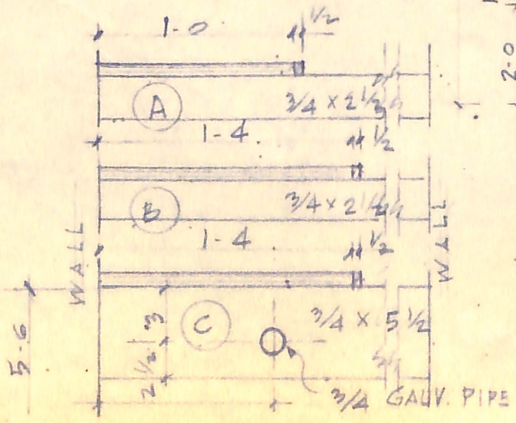 1-0
1/2
2-0
A
3/4 x 2 1/2
1-4
1/2
B
3/4 x 2 1/2
1-4
1/2
WALL
WALL
C
3/4 x 5 1/2
5-6
3
2 1/2
3/4 GALV. PIPE